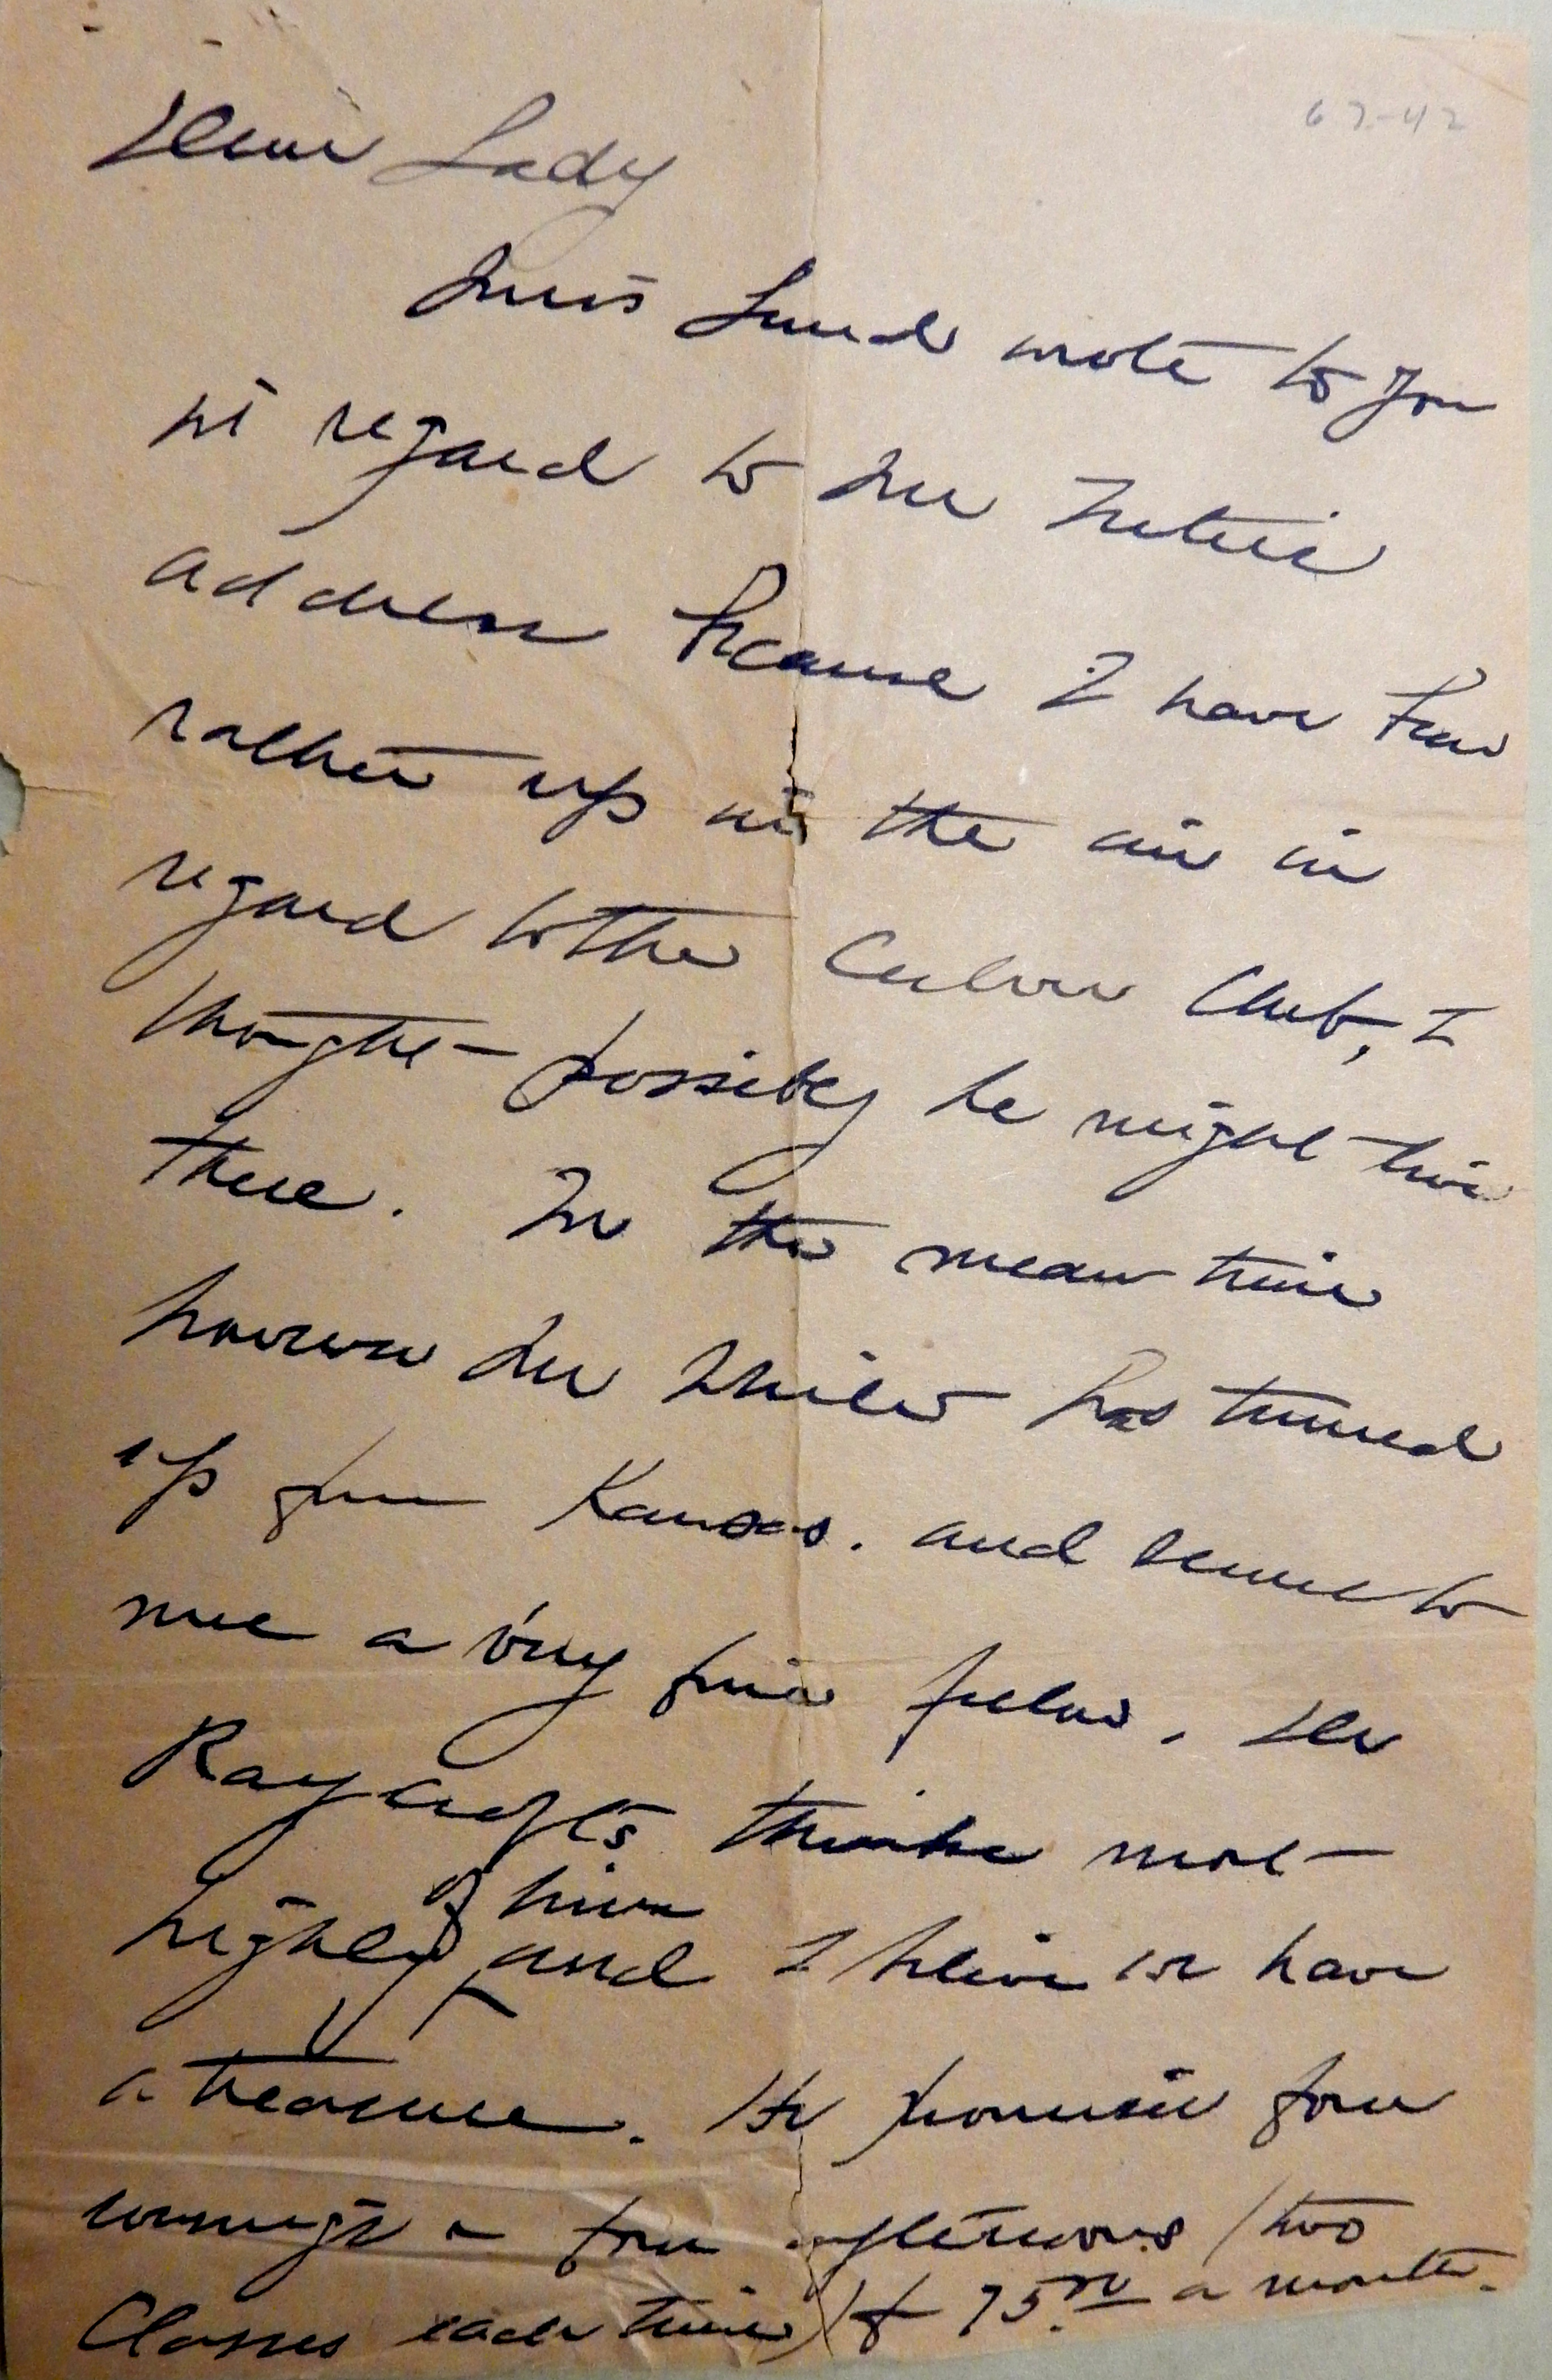 67-42
Dear Lady
Miss Lund wrote to you
in regard to Mr
address because I have been
rather up in the air in
regard to the Club, I
thought possibly he might live
there. In the mean time
however Mr has turned
up from Kansas. and seems to
me a very fine fellow. Dr
Raycroft's thinks most
of him
highly and I believe we have
a treasure. He promises four
evenings a four afternoons (two
Classes each time) for 75.00 a month.